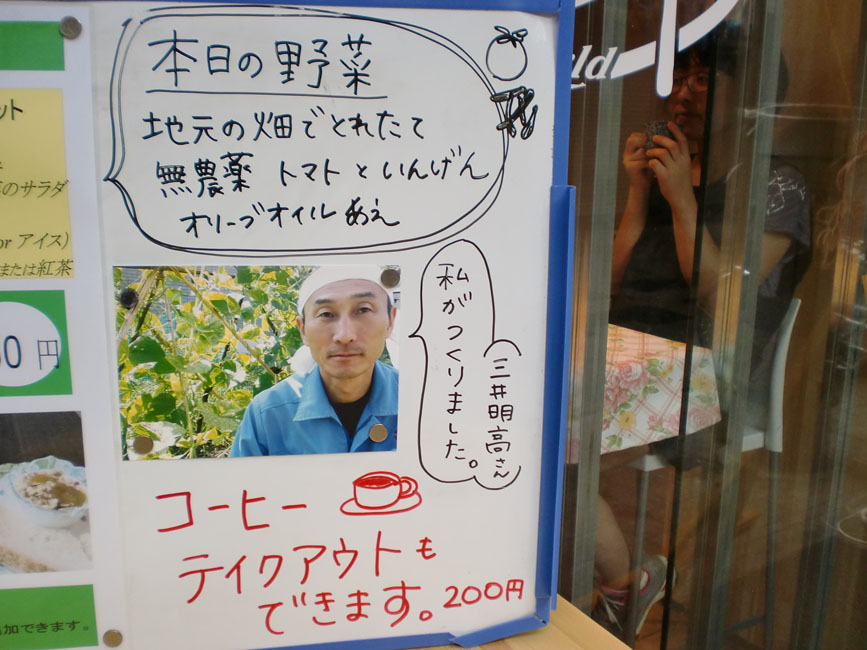 ット
のサラダ
or アイス)
または紅茶
0 円
加できます。
本日の野菜
地元の畑でとれたて
無農薬 トマトといんげん
オリーブオイルあえ
私がつくりました。
三井明高さん
コーヒー
テイクアウトも
できます。200円
ld